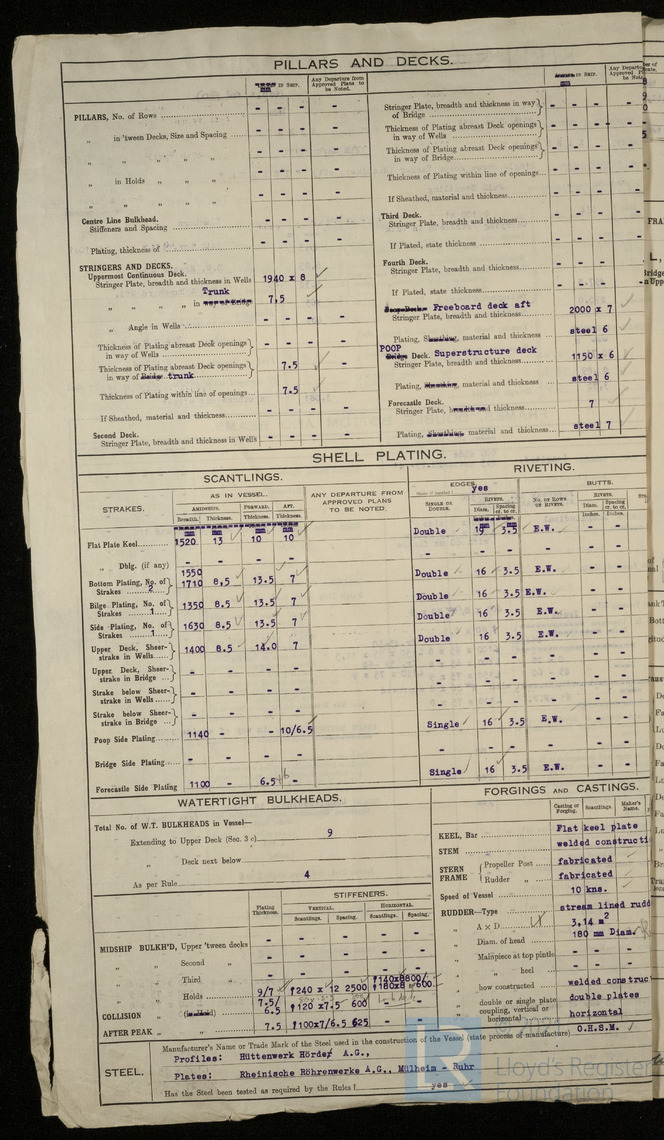 PILLARS AND DECKS.
IN SHIP. Any Departure from Approved Plans to be Noted.
PILLARS, No. of Rows - - - -
„ in 'tween Decks, Size and Spacing - - - -
„ „ „ „ - - - -
„ in Holds „ „ - - - -
„ „ „ „ - - - -
Centre Line Bulkhead.
Stiffeners and Spacing - - - -
Plating, thickness of - - - -
STRINGERS AND DECKS.
Uppermost Continuous Deck.
Stringer Plate, breadth and thickness in Wells 1940 x 8
Trunk
„ „ „ „ in way of Bridge 7,5
„ Angle in Wells - - - -
Thickness of Plating abreast Deck openings in way of Wells - - - -
Thickness of Plating abreast Deck openings in way of Bridge trunk 7.5 -
Thickness of Plating within line of openings 7.5
If Sheathed, material and thickness - - - -
Second Deck.
Stringer Plate, breadth and thickness in Wells - - - -
IN SHIP.
Stringer Plate, breadth and thickness in way of Bridge - - - -
Thickness of Plating abreast Deck openings in way of Wells - - - -
Thickness of Plating abreast Deck openings in way of Bridge - - - -
Thickness of Plating within line of openings - - - -
If Sheathed, material and thickness - - - -
Third Deck.
Stringer Plate, breadth and thickness - - - -
If Plated, state thickness - - - -
Fourth Deck.
Stringer Plate, breadth and thickness - - - -
If Plated, state thickness - - - -
Freeboard deck aft
Stringer Plate, breadth and thickness 2000 x 7
Plating, Sheathing, material and thickness steel 6
POOP
Bridge Deck. Superstructure deck
Stringer Plate, breadth and thickness 1150 x 6
Plating, Sheathing, material and thickness steel 6
Forecastle Deck.
Stringer Plate, breadth and thickness 7
Plating, Sheathing, material and thickness steel 7
SHELL PLATING.
SCANTLINGS. RIVETING.
STRAKES. AS IN VESSEL. ANY DEPARTURE FROM APPROVED PLANS TO BE NOTED. EDGES yes BUTTS.
AMIDSHIPS. FORWARD. AFT. SINGLE OR DOUBLE. RIVETS. NO. OF ROWS OF RIVETS. RIVETS.
Breadth. Thickness. Thickness. Thickness. Diam. Spacing cr. to cr. Diam. Spacing cr. to cr.
Inches. Inches.
Flat Plate Keel 1520 13 10 10 Double 19 3.5 E.W. - -
„ Dblg. (if any) - - - - - - - - - -
Bottom Plating, No. of Strakes 2 1550 1710 8,5 13.5 7 Double 16 3.5 E.W. - -
Bilge Plating, No. of Strakes 1 1350 8.5 13.5 7 Double 16 3.5 E.W. - -
Side Plating, No. of Strakes 1 1630 8.5 13.5 7 Double 16 3.5 E.W. - -
Upper Deck, Sheer-strake in Wells 1400 8.5 14.0 7 Double 16 3.5 E.W. - -
Upper Deck, Sheer-strake in Bridge - - - - - - - - - -
Strake below Sheer-strake in Wells - - - - - - - - - -
Strake below Sheer-strake in Bridge - - - - - - - - - -
Poop Side Plating 1140 - - 10/6.5 Single 16 3.5 E.W. - -
Bridge Side Plating - - - - - - - - - -
Forecastle Side Plating 1100 - 6.5 - Single 16 3.5 E.W. - -
WATERTIGHT BULKHEADS.
Total No. of W.T. BULKHEADS in Vessel—
Extending to Upper Deck (Sec. 3 c) 9
„ Deck next below -
As per Rule 4
STIFFENERS.
Plating Thickness. VERTICAL. HORIZONTAL.
Scantlings. Spacing. Scantlings. Spacing.
MIDSHIP BULKH'D, Upper 'tween decks - - - - -
„ „ Second „ - - - - -
„ „ Third „ - - - 140x8 800/
„ „ Holds 9/7 240 x 12 2500 180x8 600
COLLISION „ (in Hold) 7.5/6.5 120 x7.5 600
AFTER PEAK „ „ 7.5 100x7/6.5 625 - -
FORGINGS AND CASTINGS.
Casting or Forging. Scantlings. Maker's Name.
KEEL, Bar Flat keel plate
STEM welded constructi
STERN FRAME Propeller Post fabricated
Rudder „ fabricated
Speed of Vessel 10 kns.
RUDDER—Type stream lined rudd
„ A x D 3,14 m2
„ Diam. of head 180 mm Diam.
„ Mainpiece at top pintle - - -
„ „ heel - - -
„ how constructed welded construc
„ double or single plate double plates
„ coupling, vertical or horizontal horizontal
STEEL.
Manufacturer's Name or Trade Mark of the Steel used in the construction of the Vessel (state process of manufacture) O.H.S.M.
Profiles: Hüttenwerk Hörde A.G.,
Plates: Rheinische Röhrenwerke A.G., Mülheim - Ruhr
Has the Steel been tested as required by the Rules? yes
LR
Lloyd's Register
Foundation